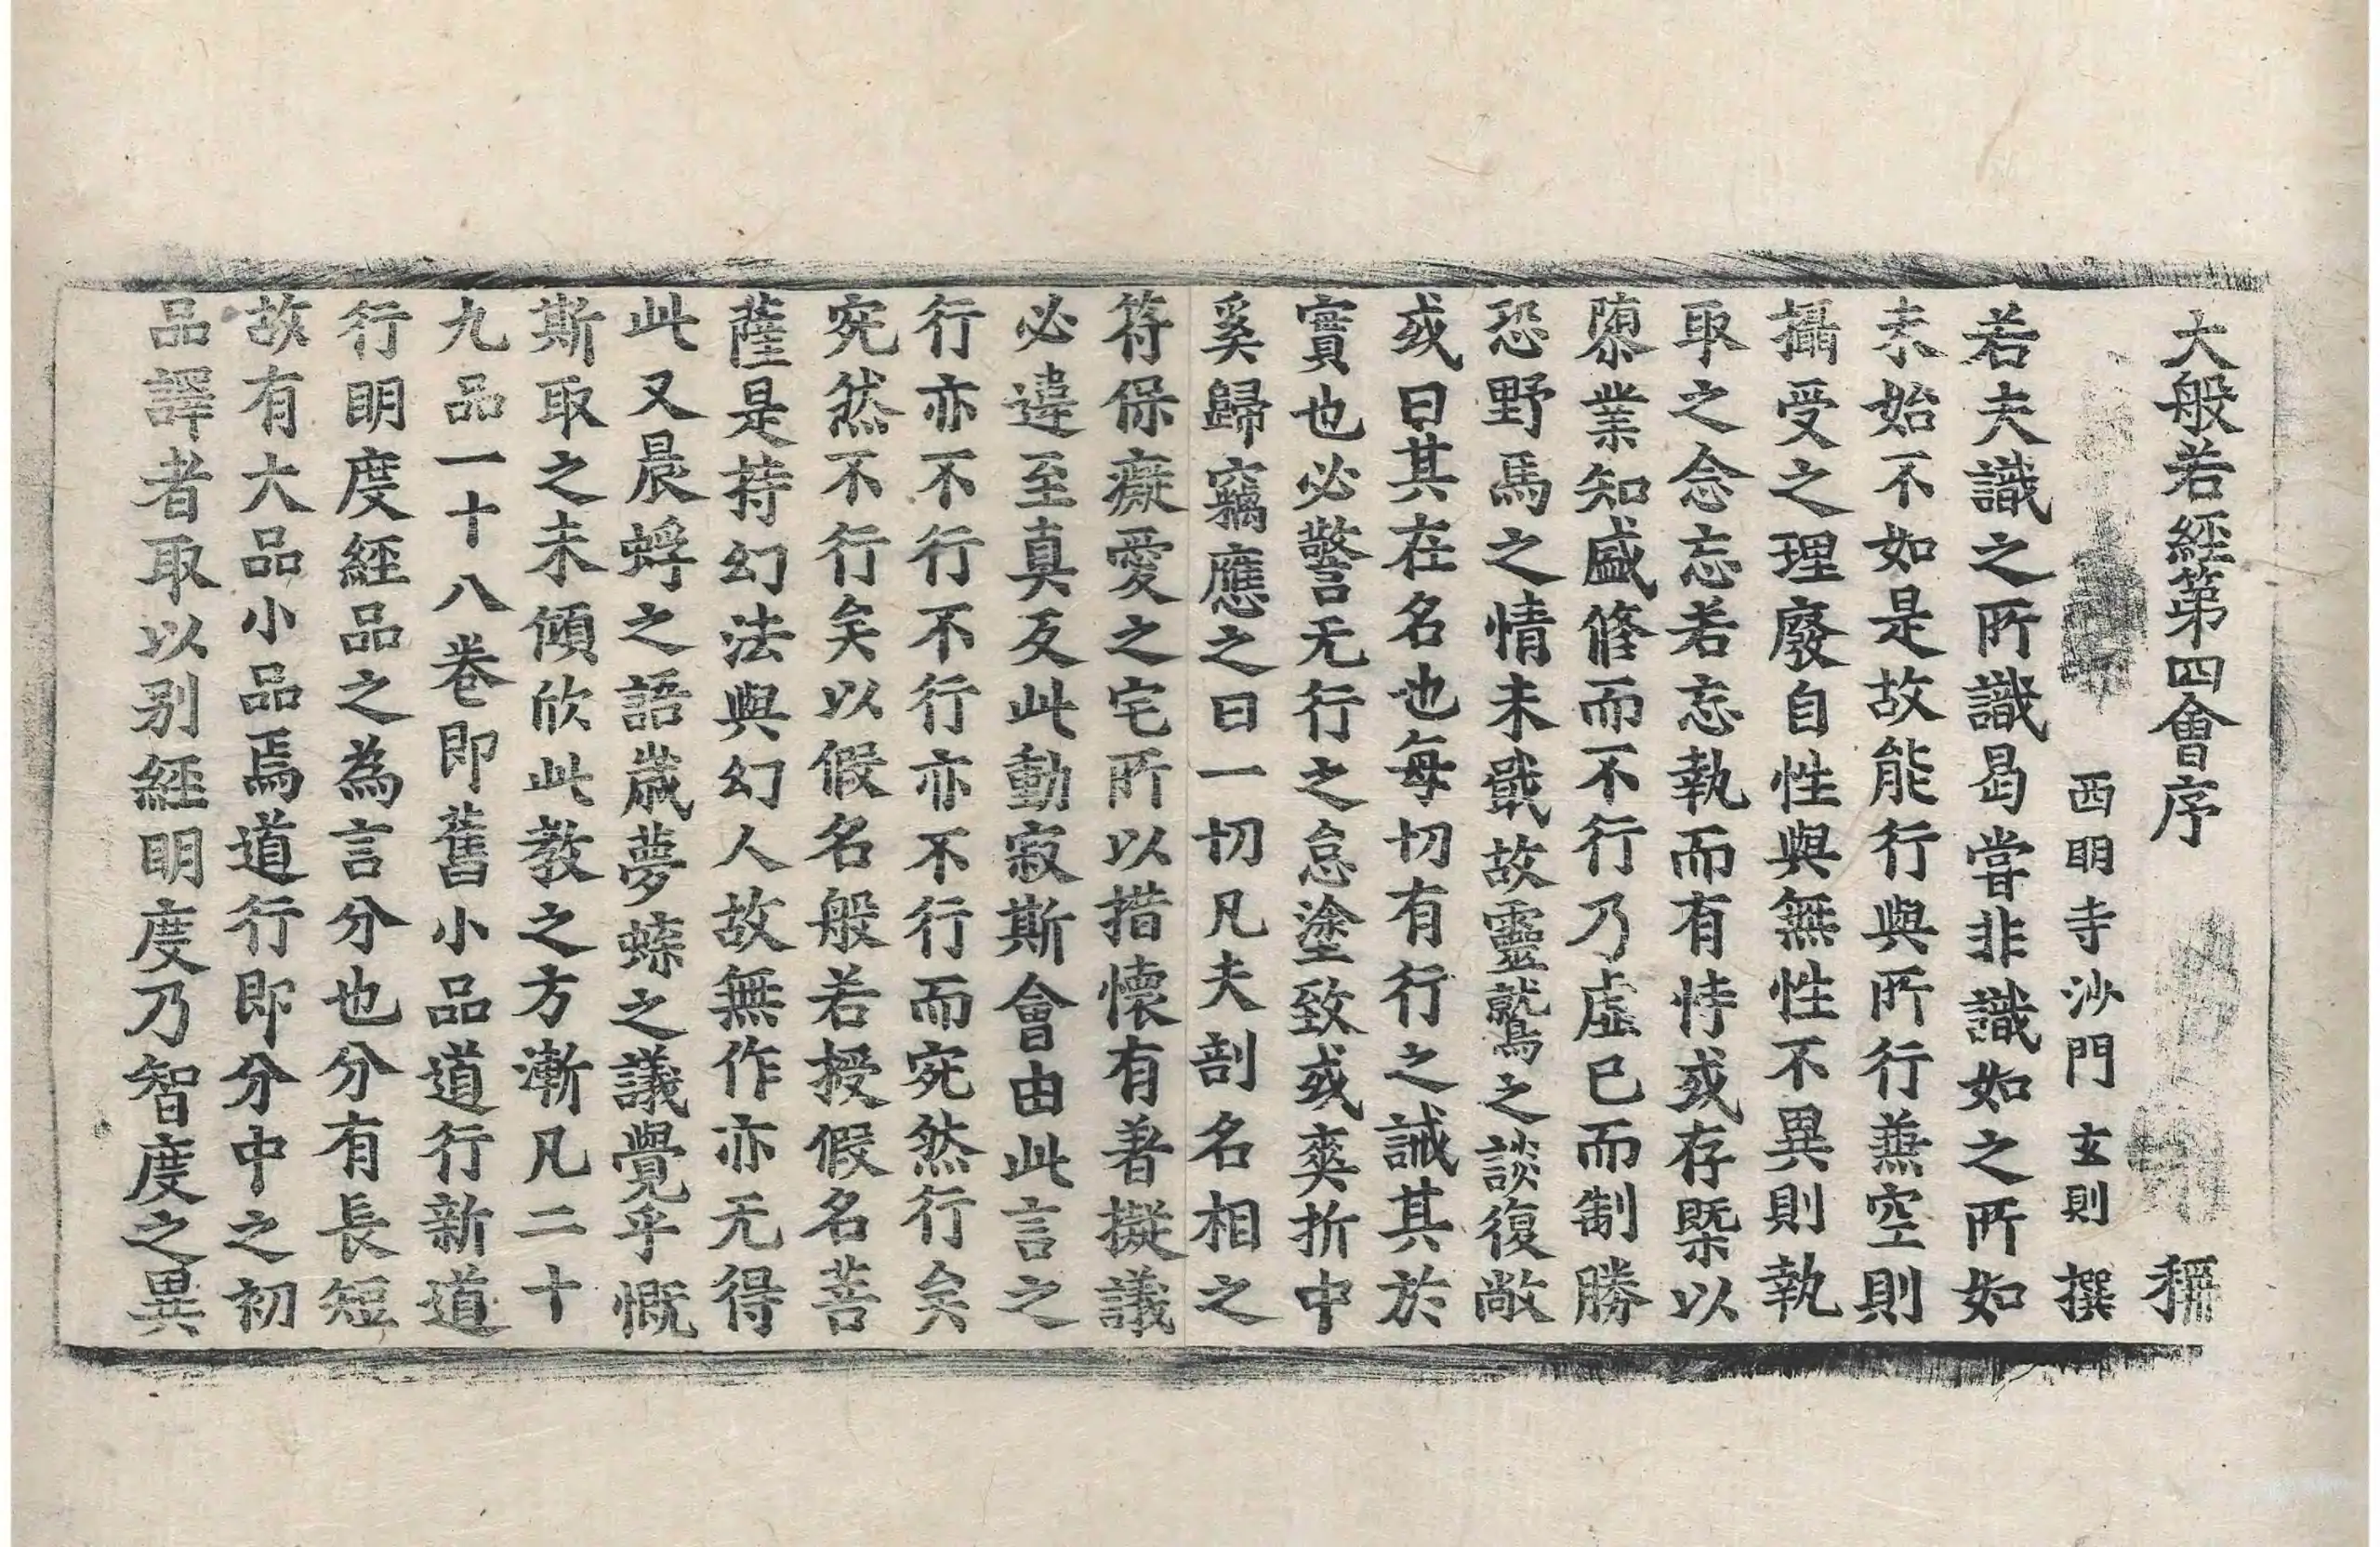 大般若經第四會序 稱
西明寺沙門玄則撰
若夫識之所識曷嘗非識如之所如
未始不如是故能行與所行兼空則
攝受之理廢自性與無性不異則執
取之念忘若忘執而有恃或存槩以
隳業知盛修而不行乃虛己而制勝
恐野馬之情未戢故靈鷲之談復敞
或曰其在名也每切有行之誡其於
實也必警无行之怠塗致或爽折中
奚歸竊應之曰一切凡夫剖名相之
符保癡愛之宅所以措懷有著擬議
必違至真反此動寂斯會由此言之
行亦不行不行亦不行而宛然行矣
宛然不行矣以假名般若授假名菩
薩是持幻法與幻人故無作亦无得
此又晨蜉之語歲夢蝶之議覺乎慨
斯取之未傾欣此教之方漸凡二十
九品一十八卷即舊小品道行新道
行明度經品之為言分也分有長短
故有大品小品焉道行即分中之初
品譯者取以別經明度乃智度之異